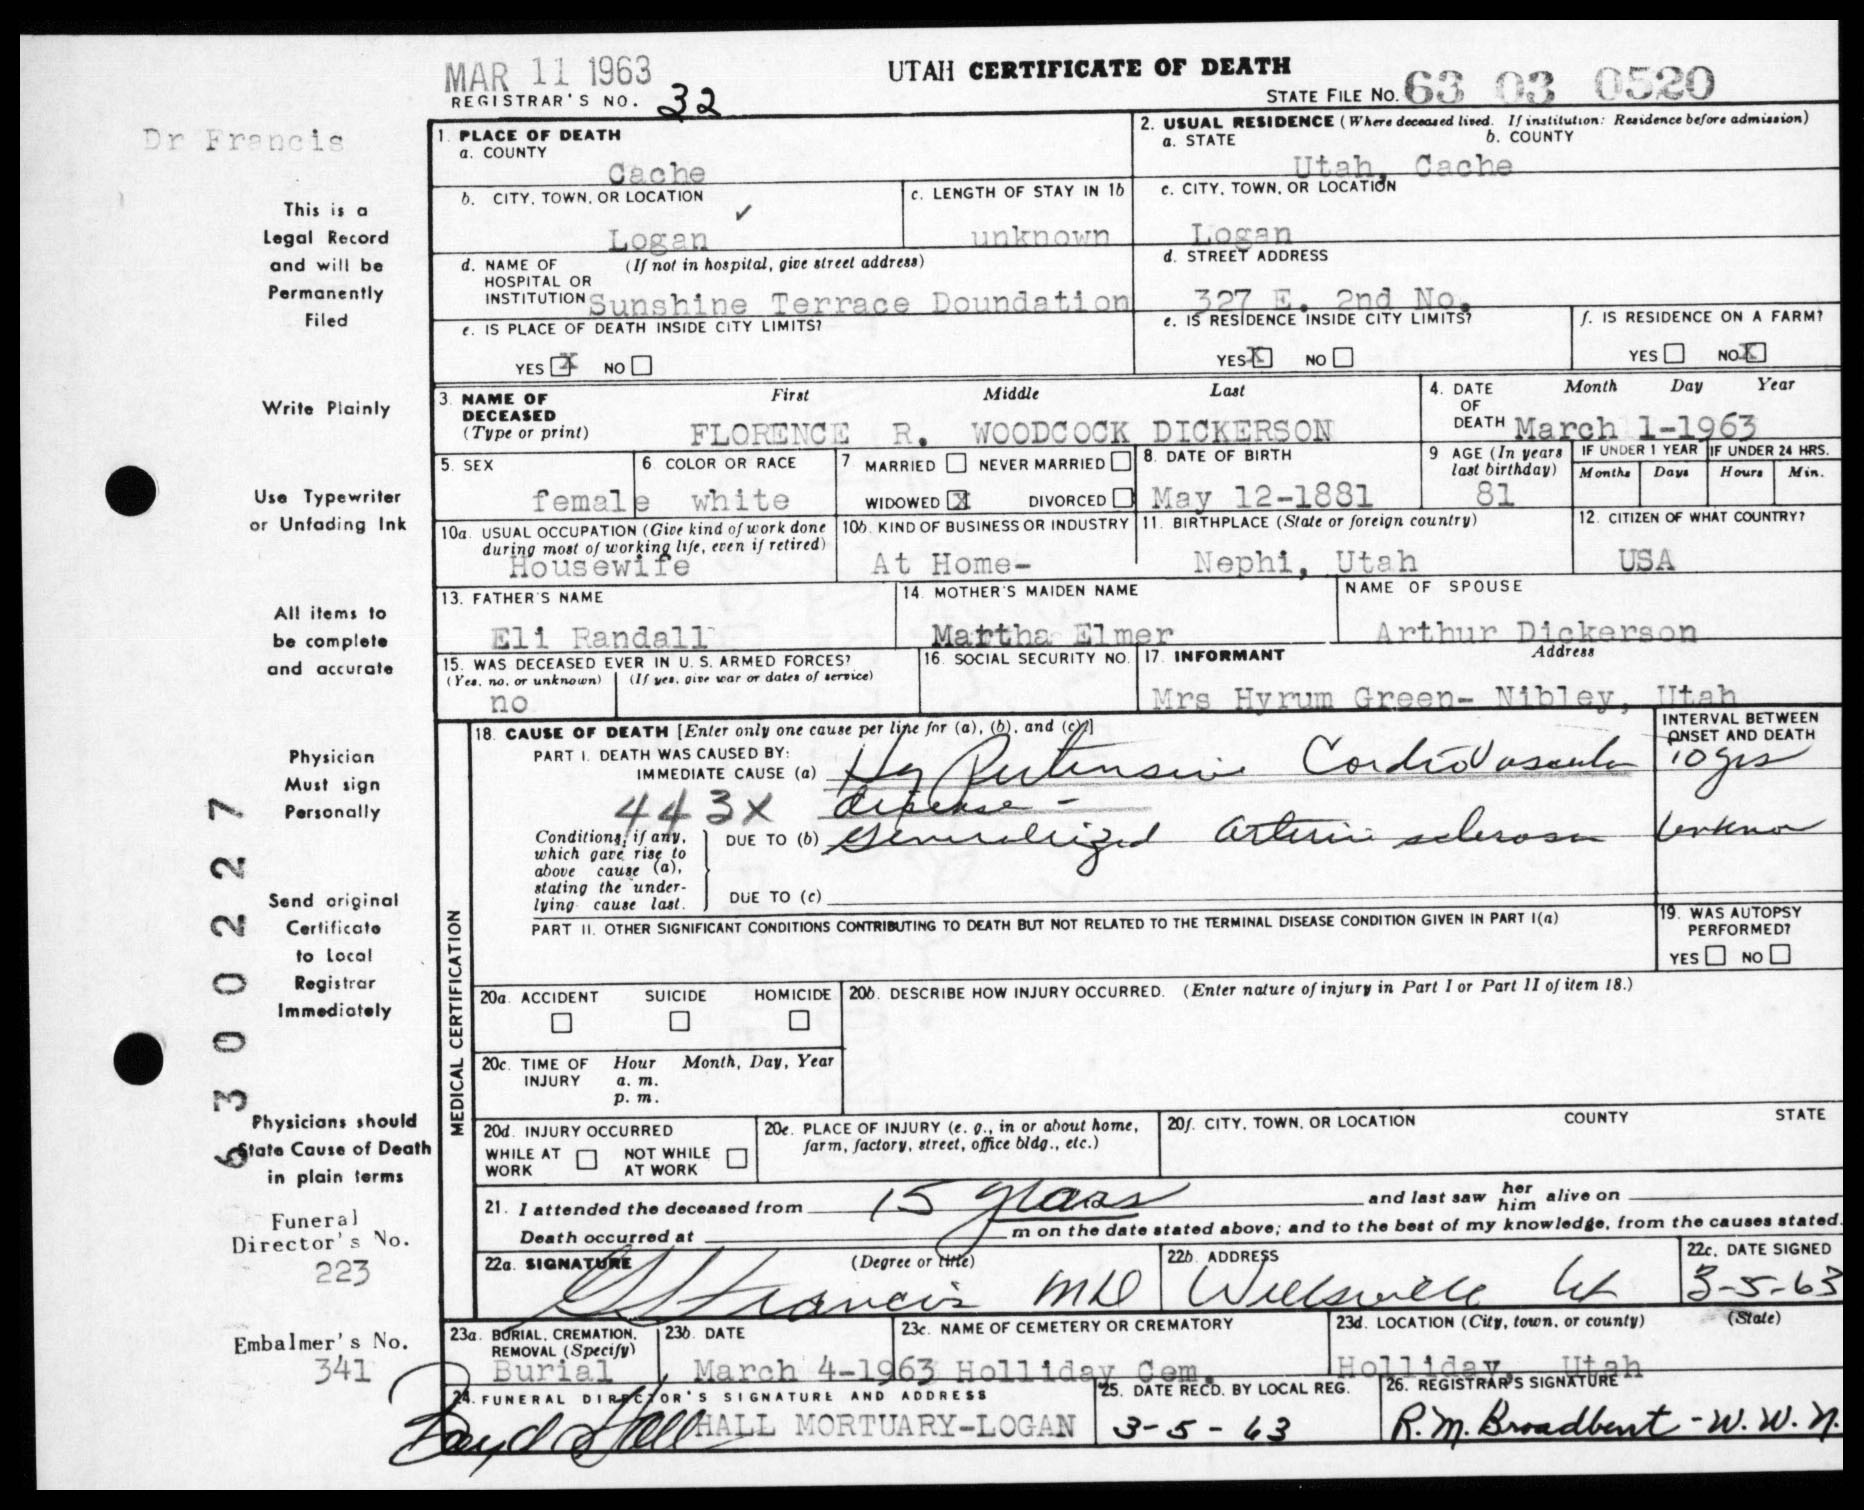 MAR 11 1963
UTAH CERTIFICATE OF DEATH
REGISTRAR'S NO. 32
STATE FILE NO. 63 03 0520
Dr Francis
This is a
Legal Record
and will be
Permanently
Filed
Write Plainly
Use Typewriter
or Unfading Ink
All items to
be complete
and accurate
Physician
Must sign
Personally
Send original
Certificate
to Local
Registrar
Immediately
Physicians should
State Cause of Death
in plain terms
Funeral
Director's No.
223
Embalmer's No.
341
6300227
1. PLACE OF DEATH
a. COUNTY
Cache
2. USUAL RESIDENCE (Where deceased lived. If institution: Residence before admission)
a. STATE b. COUNTY
Utah, Cache
b. CITY, TOWN, OR LOCATION ✓
Logan
c. LENGTH OF STAY IN 1b
unknown
c. CITY, TOWN, OR LOCATION
Logan
d. NAME OF (If not in hospital, give street address)
HOSPITAL OR
INSTITUTION Sunshine Terrace Doundation
d. STREET ADDRESS
327 E. 2nd No.
e. IS PLACE OF DEATH INSIDE CITY LIMITS?
YES X NO
e. IS RESIDENCE INSIDE CITY LIMITS?
YES X NO
f. IS RESIDENCE ON A FARM?
YES NO X
3. NAME OF First Middle Last
DECEASED
(Type or print) FLORENCE R. WOODCOCK DICKERSON
4. DATE Month Day Year
OF
DEATH March 1-1963
5. SEX
female
6. COLOR OR RACE
white
7. MARRIED NEVER MARRIED
WIDOWED X DIVORCED
8. DATE OF BIRTH
May 12-1881
9 AGE (In years
last birthday)
81
IF UNDER 1 YEAR IF UNDER 24 HRS.
Months Days Hours Min.
10a. USUAL OCCUPATION (Give kind of work done
during most of working life, even if retired)
Housewife
10b. KIND OF BUSINESS OR INDUSTRY
At Home-
11. BIRTHPLACE (State or foreign country)
Nephi, Utah
12. CITIZEN OF WHAT COUNTRY?
USA
13. FATHER'S NAME
Eli Randall
14. MOTHER'S MAIDEN NAME
Martha Elmer
NAME OF SPOUSE
Arthur Dickerson
15. WAS DECEASED EVER IN U. S. ARMED FORCES?
(Yes, no, or unknown) (If yes, give war or dates of service)
no
16. SOCIAL SECURITY NO.
17. INFORMANT Address
Mrs Hyrum Green- Nibley, Utah
MEDICAL CERTIFICATION
18. CAUSE OF DEATH [Enter only one cause per line for (a), (b), and (c).]
INTERVAL BETWEEN
ONSET AND DEATH
PART I. DEATH WAS CAUSED BY:
IMMEDIATE CAUSE (a) Hypertensive CardioVascular 10 yrs
443X disease -
Conditions, if any,
which gave rise to
above cause (a),
stating the under-
lying cause last.
DUE TO (b) Generalized arterio sclerosis Unknow
DUE TO (c)
PART II. OTHER SIGNIFICANT CONDITIONS CONTRIBUTING TO DEATH BUT NOT RELATED TO THE TERMINAL DISEASE CONDITION GIVEN IN PART I(a)
19. WAS AUTOPSY
PERFORMED?
YES NO
20a. ACCIDENT SUICIDE HOMICIDE
20b. DESCRIBE HOW INJURY OCCURRED. (Enter nature of injury in Part I or Part II of item 18.)
20c. TIME OF Hour Month, Day, Year
INJURY a. m.
p. m.
20d. INJURY OCCURRED
WHILE AT NOT WHILE
WORK AT WORK
20e. PLACE OF INJURY (e. g., in or about home,
farm, factory, street, office bldg., etc.)
20f. CITY, TOWN, OR LOCATION COUNTY STATE
21. I attended the deceased from 15 years and last saw her him alive on
Death occurred at m on the date stated above; and to the best of my knowledge, from the causes stated.
22a. SIGNATURE (Degree or title)
Francis MD
22b. ADDRESS
Wellsville Ut
22c. DATE SIGNED
3-5-63
23a. BURIAL, CREMATION,
REMOVAL (Specify)
Burial
23b. DATE
March 4-1963
23c. NAME OF CEMETERY OR CREMATORY
Holliday Cem.
23d. LOCATION (City, town, or county) (State)
Holliday, Utah
24. FUNERAL DIRECTOR'S SIGNATURE AND ADDRESS
Boyd Hall HALL MORTUARY-LOGAN
25. DATE RECD. BY LOCAL REG.
3-5-63
26. REGISTRAR'S SIGNATURE
R.M. Broadbent - W.W.N.